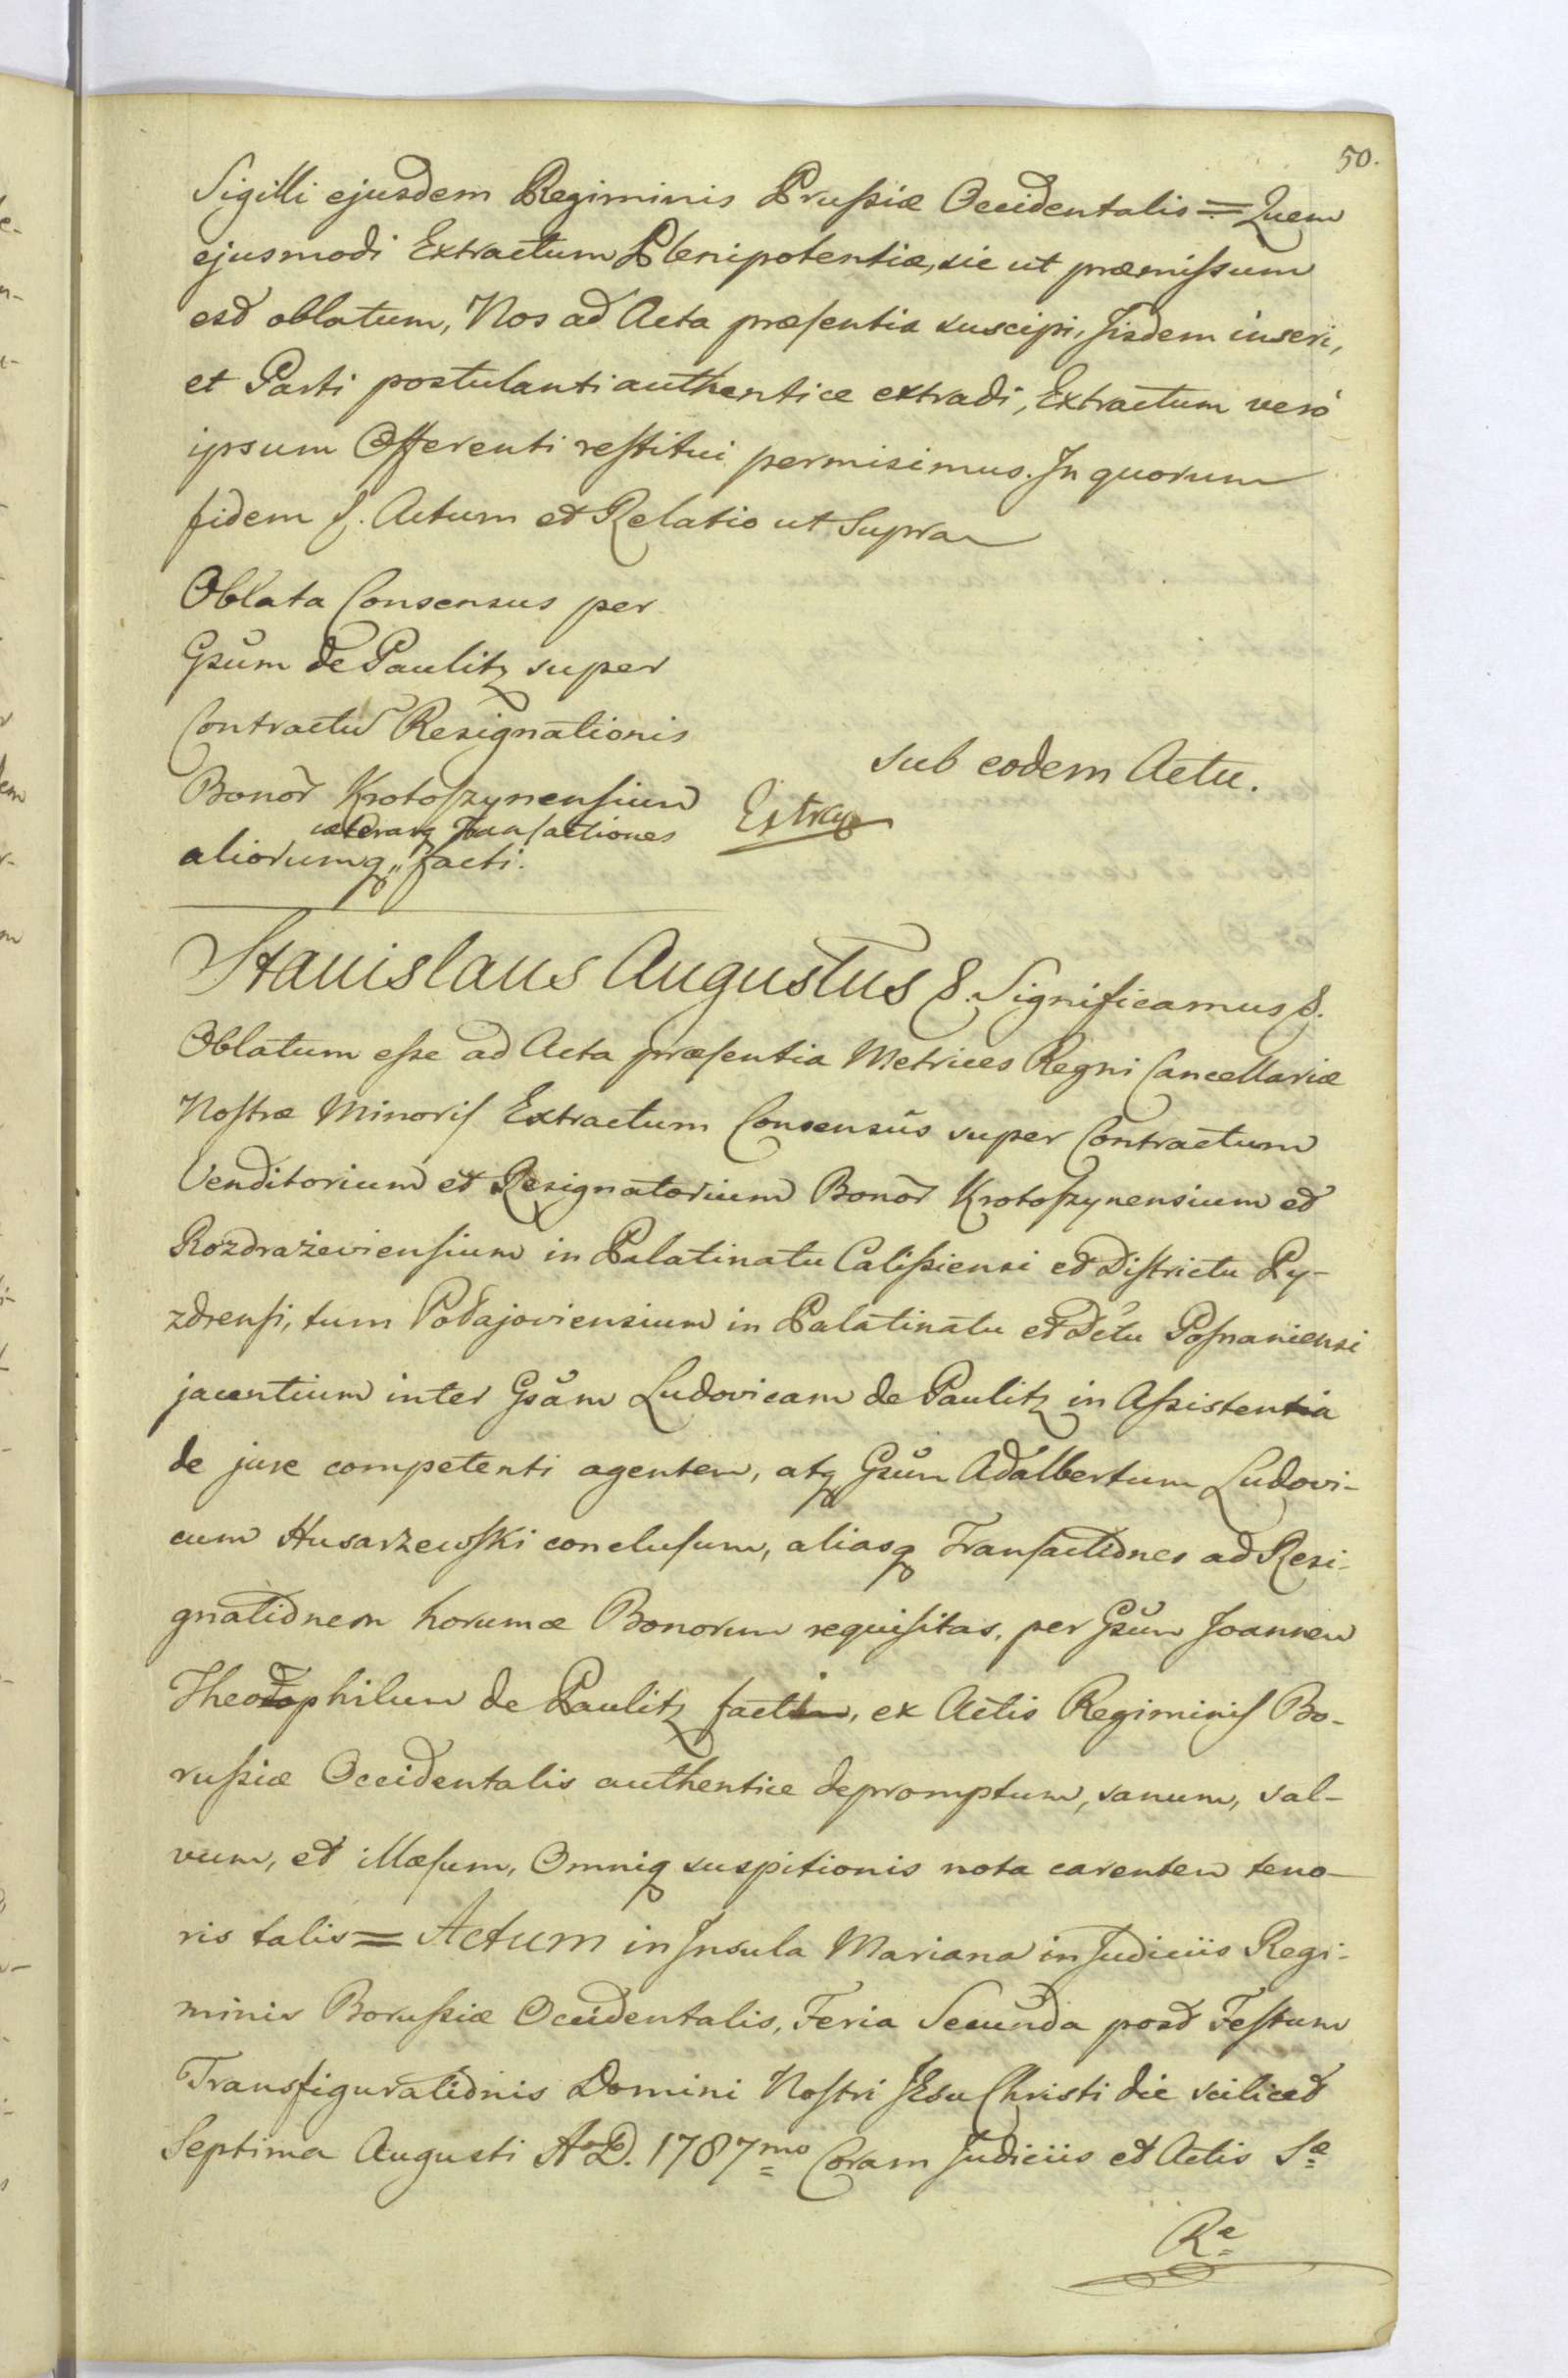 50.
Sigilli ejusdem Regiminis Prussiæ Occidentalis = Quem
ejusmodi Extractum Plenipotentiæ, sic ut præmissum
est oblatum, Nos ad Acta præsentia suscipi, Jisdem inseri,
et Parti postulanti authentice extradi, Extractum verò
ipsum Offerenti restitui permisimus. In quorum
fidem &. Actum et Relatio ut Supra
Oblata Consensus per
Gsũm de Paulitz super
Contractu Resignationis
Bonor̃ Krotoszynensium
cæterasq Transactiones
aliorumq, facti.
sub eodem Actu.
Extrax
Stanislaus Augustus &. Significamus &.
Oblatum esse ad Acta præsentia Metrices Regni Cancellariæ
Nostræ Minoris Extractum Consensûs super Contractum
Venditorium et Resignatorium Bonor̃ Krotoszynensium et
Rozdrażeviensium in Palatinatu Calissiensi et Districtu Py-
zdrensi, tum Podajoviensium in Palatinatu et Dctu Posnaniensi
jacentium inter Gsãm Ludovicam de Paulitz in Assistentia
de jure competenti agentem, atq Gsũm Adalbertum Ludovi-
cum Husarzewski conclusum, aliasq Transactiones ad Resi-
gnationem horumce Bonorum requisitas, per Gsũm Joannem
Theophilum de Paulitz facti, ex Actis Regiminis Bo-
russiæ Occidentalis authentice depromptum, sanum, sal-
vum, et illæsum, Omniq suspitionis nota carentem teno-
ris talis = Actum in Insula Mariana in Judiciis Regi-
minis Borussiæ Occidentalis, Feria Secunda post Festum
Transfigurationis Domini Nostri JEsu Christi die scilicet
Septima Augusti A D. 1787mo Coram Judiciis et Actis Sæ
Ræ